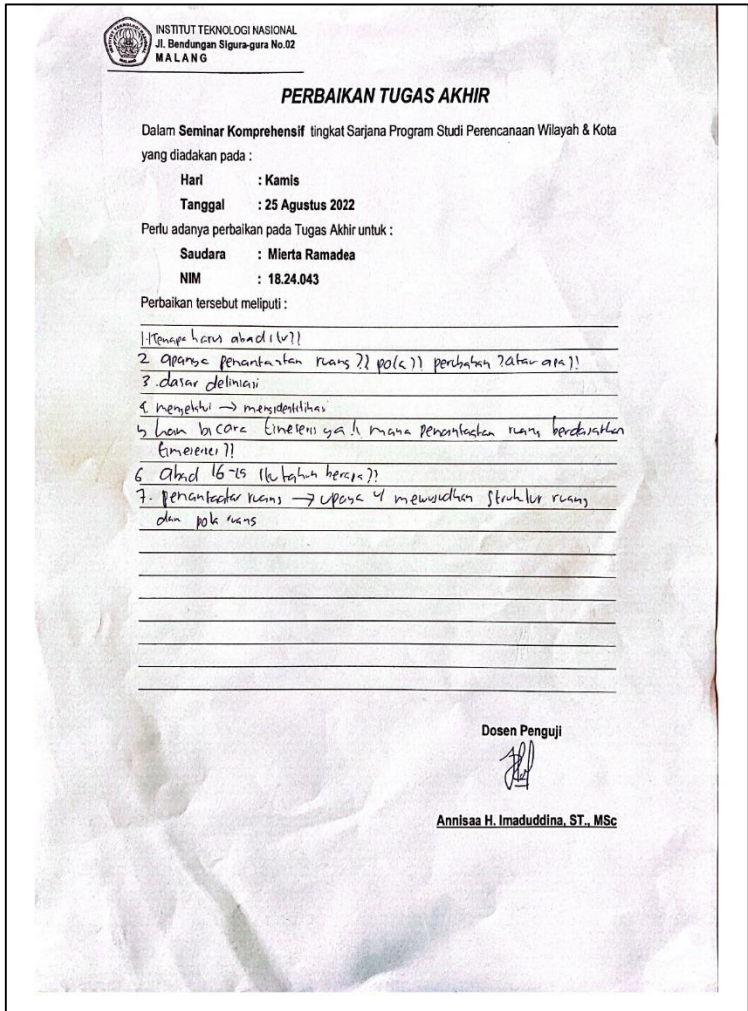 INSTITUT TEKNOLOGI NASIONAL
Jl. Bendungan Sigura-gura No.02
MALANG
PERBAIKAN TUGAS AKHIR
Dalam Seminar Komprehensif tingkat Sarjana Program Studi Perencanaan Wilayah & Kota
yang diadakan pada :
Hari : Kamis
Tanggal : 25 Agustus 2022
Perlu adanya perbaikan pada Tugas Akhir untuk :
Saudara : Mierta Ramadea
NIM : 18.24.043
Perbaikan tersebut meliputi :
1. Kenapa harus abad itu??
2 apanya ruang ?? pola ?? perubahan ? atau apa ??
3. dasar deliniasi
4 →
5 bicara mana ruang berdasarkan
??
6 abad 16-15 itu tahun berapa ??
7. ruang → upaya struktur ruang
dan pola ruang
Dosen Penguji
Annisaa H. Imaduddina, ST., MSc